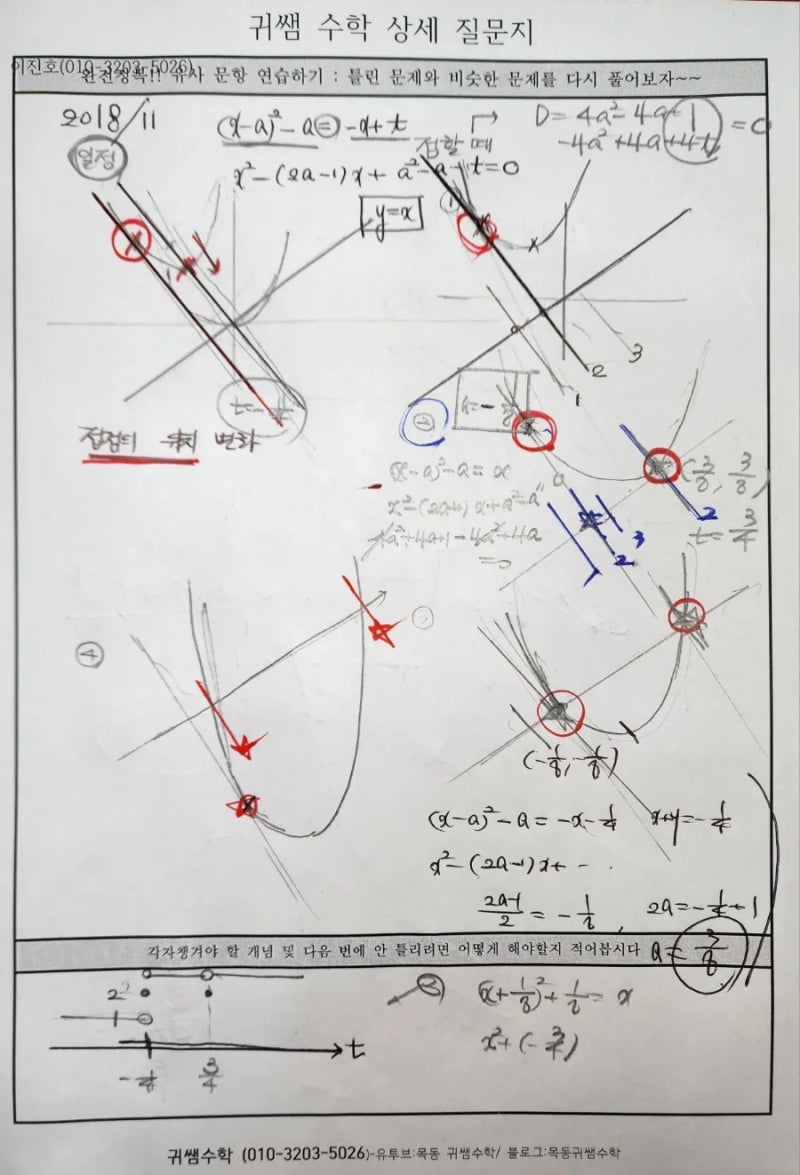 귀쌤 수학 상세 질문지
이진호(010-3203-5026)
완전정복!! 유사 문항 연습하기 : 틀린 문제와 비슷한 문제를 다시 풀어보자~~
2018/11
열정
(x-a)²-a=-x+t
접할 때
D=4a²-4a+1
-4a²+4a+4t =0
x²-(2a-1)x+a²-a-t=0
y=x
①
1
2
3
t=-1/4
접점의 위치 변화
②
a=-1/8
(x-a)²-a=x
x²-(2a+1)x+a²-a
4a²+4a+1-4a²+4a
=0
(3/8, 3/8)
2
t=3/4
3
2
③
④
(-1/8, -1/8)
(x-a)²-a=-x-1/4
x+y=-1/4
x²-(2a-1)x+ - ·
(2a-1)/2=-1/8, 2a=-1/4+1
각자챙겨야 할 개념 및 다음 번에 안 틀리려면 어떻게 해야할지 적어봅시다
a=3/8
2
1
t
-1/4
3/4
(x+1/8)²+1/8=x
x²+(-3/4)
귀쌤수학 (010-3203-5026)-유투브:목동 귀쌤수학/ 블로그:목동귀쌤수학